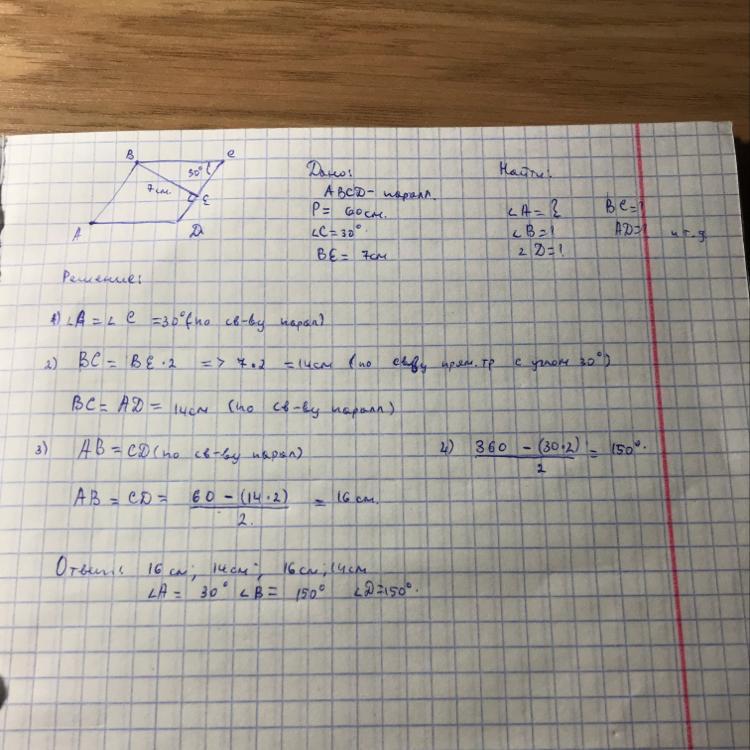 B C
30°
7 см
E
A D
Дано:
ABCD - паралл.
P = 60 см.
∠C = 30°
BE = 7 см
Найти:
∠A = ? BC = ?
∠B = ? AD = ? и т. д
∠D = ?
Решение:
1) ∠A = ∠C = 30° (по св-ву парал)
2) BC = BE · 2 => 7 · 2 = 14 см (по св-ву прям. тр с углом 30°)
BC = AD = 14 см (по св-ву паралл)
3) AB = CD (по св-ву парал)
AB = CD = 60 - (14 · 2) / 2 = 16 см.
4) 360 - (30 · 2) / 2 = 150°.
Ответ: 16 см; 14 см; 16 см; 14 см
∠A = 30° ∠B = 150° ∠D = 150°.